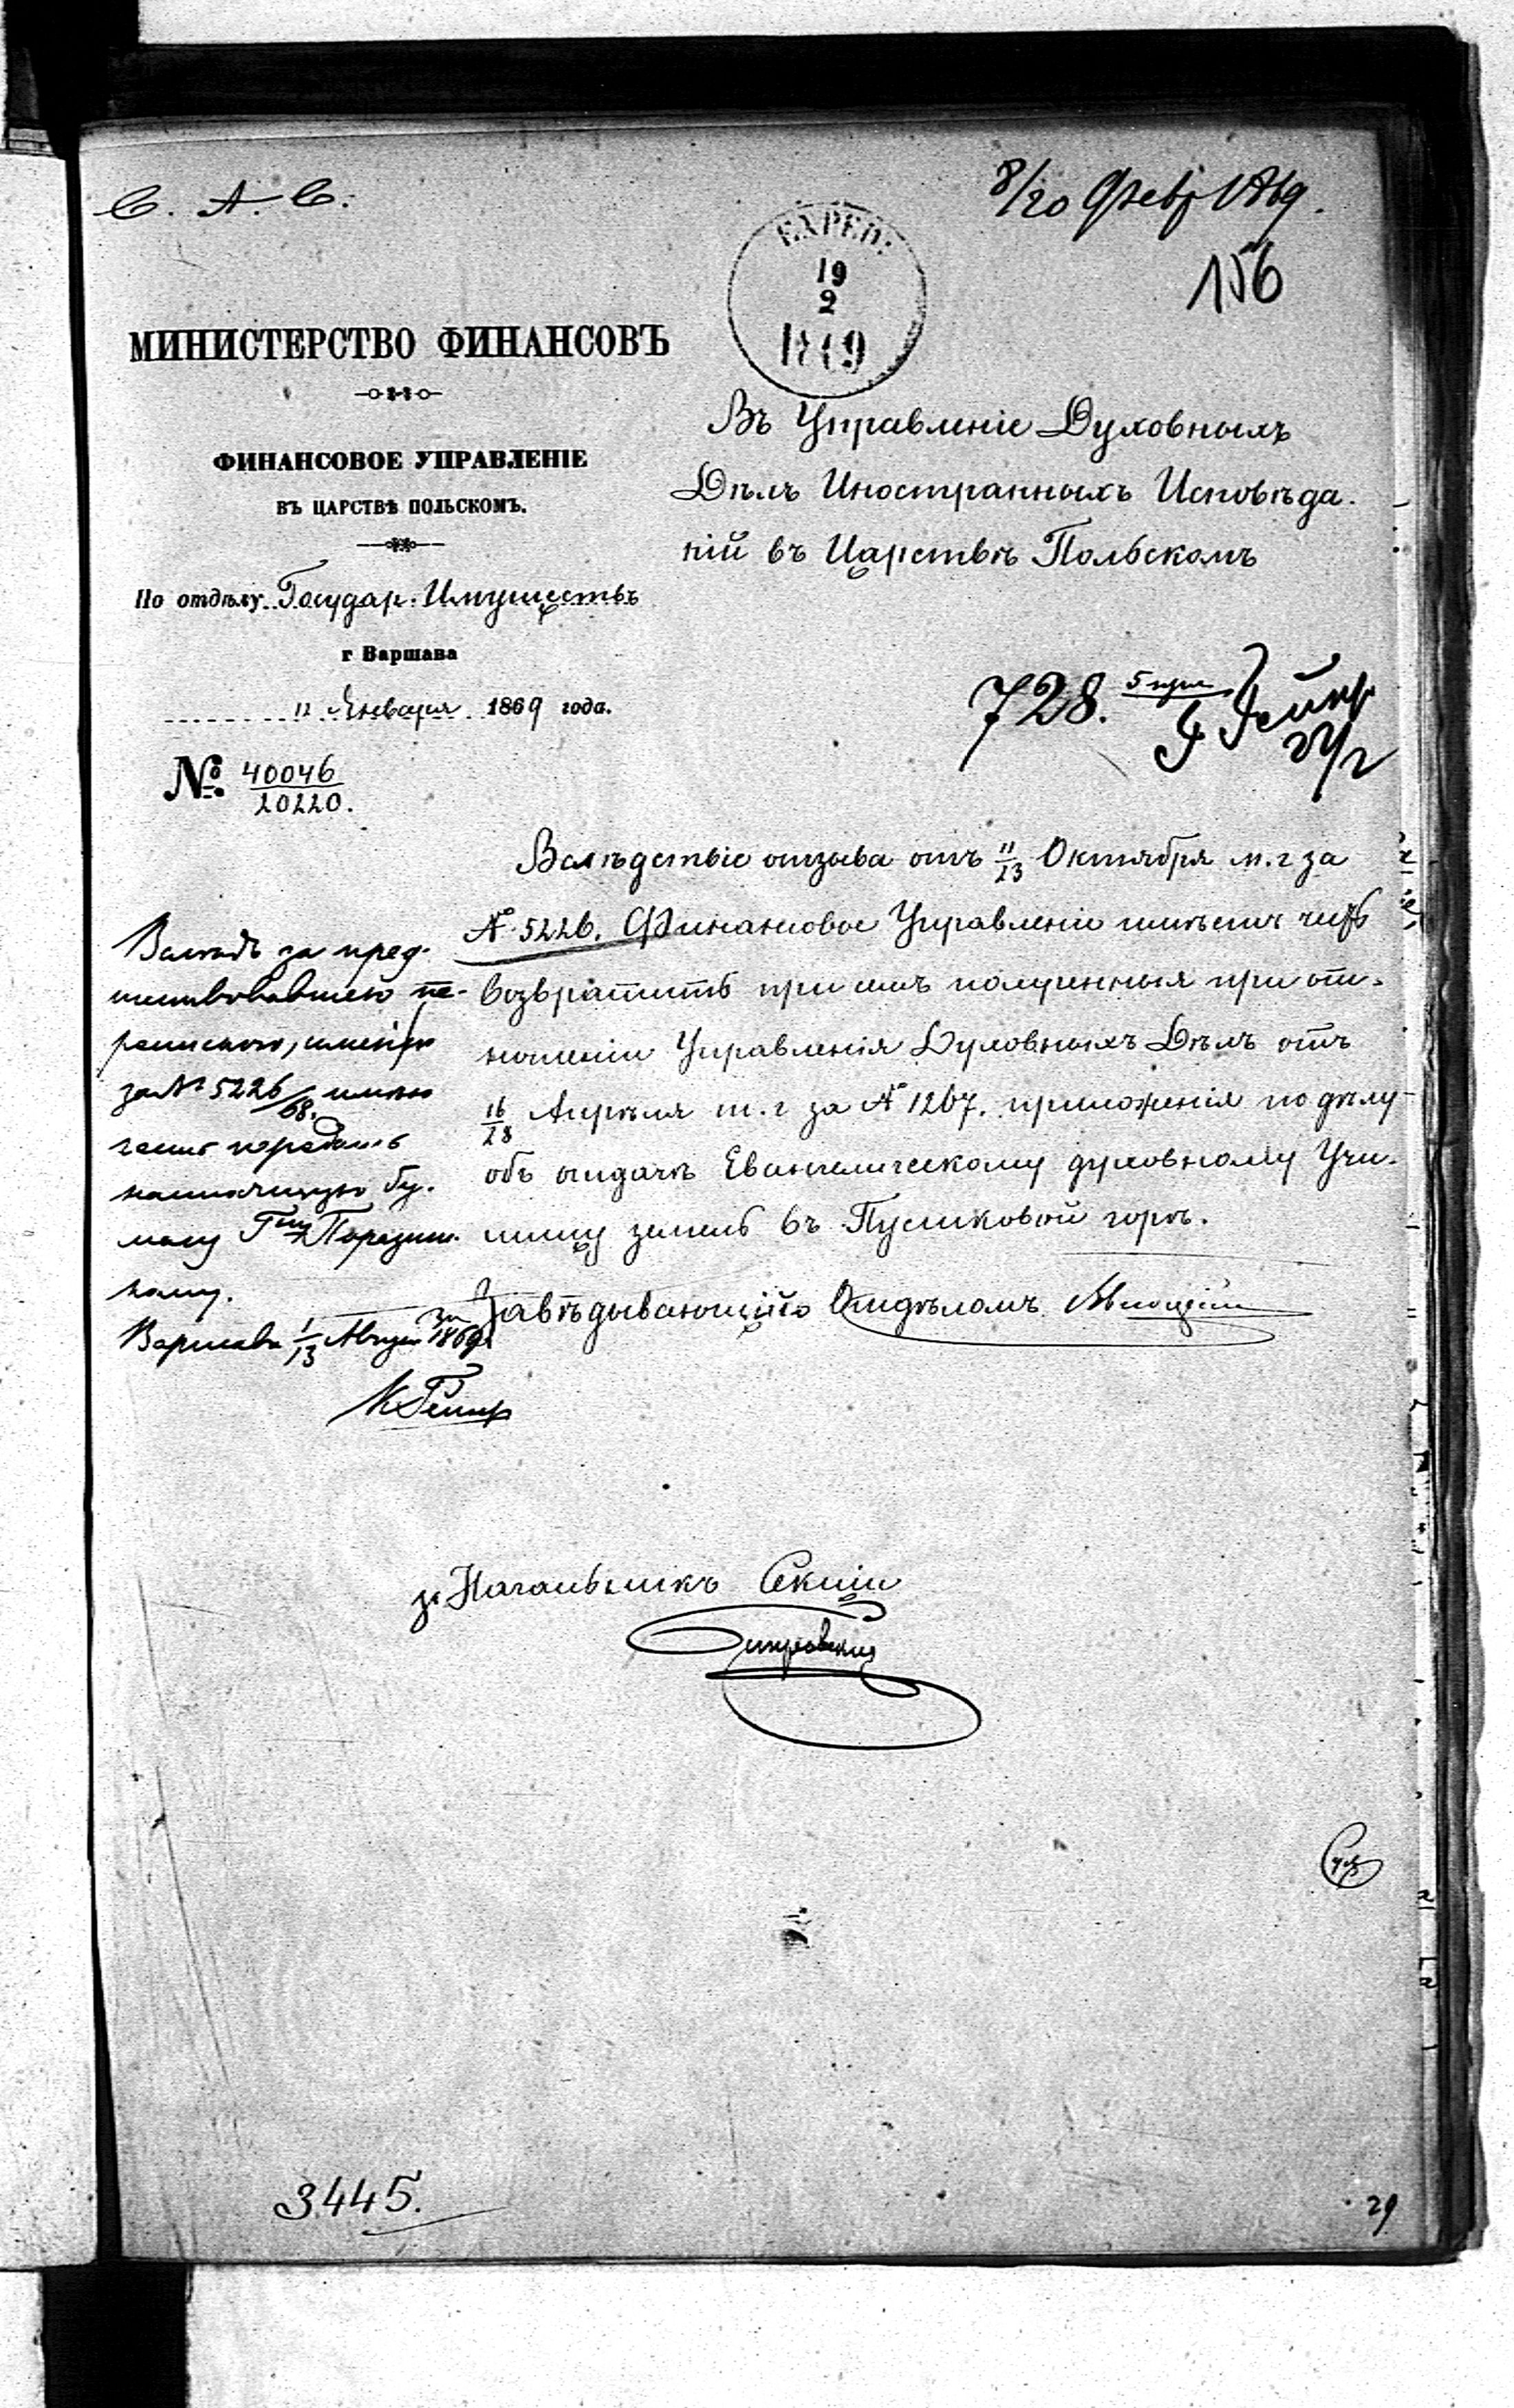 С. А. С.
8/20 Февр 1869.
156
EXPED:
19
2
1869
МИНИСТЕРСТВО ФИНАНСОВЪ
ФИНАНСОВОЕ УПРАВЛЕНІЕ
ВЪ ЦАРСТВѢ ПОЛЬСКОМЪ.
По отдѣлу Государ. Имуществъ
г Варшава
11 Января 1869 года.
№ 40046/20220.
Въ Управленіе Духовныхъ
Дѣлъ Иностранныхъ Исповѣда-
ній въ Царствѣ Польскомъ
728. 5 прил
Вслѣдствіе отзыва отъ 11/23 Октября м. г за
№ 5226. Финансовое Управленіе имѣетъ честь
возвратить при семъ полученныя при от-
ношеніи Управленія Духовныхъ Дѣлъ отъ
16/28 Апрѣля т. г за № 1267. приложенія по дѣлу
объ отдачѣ Евангелическому духовному Учи-
лищу земель въ Пусиковой горѣ.
За Завѣдывающаго Отдѣломъ
Вслѣдъ за пред-
шествовавшею пе-
репискою,
за № 5226/68. имѣю
честь передать
настоящую бу-
магу Гну
кому.
Варшава 1/13 Августа 1869 г
за Начальникъ Секціи
3445.
29